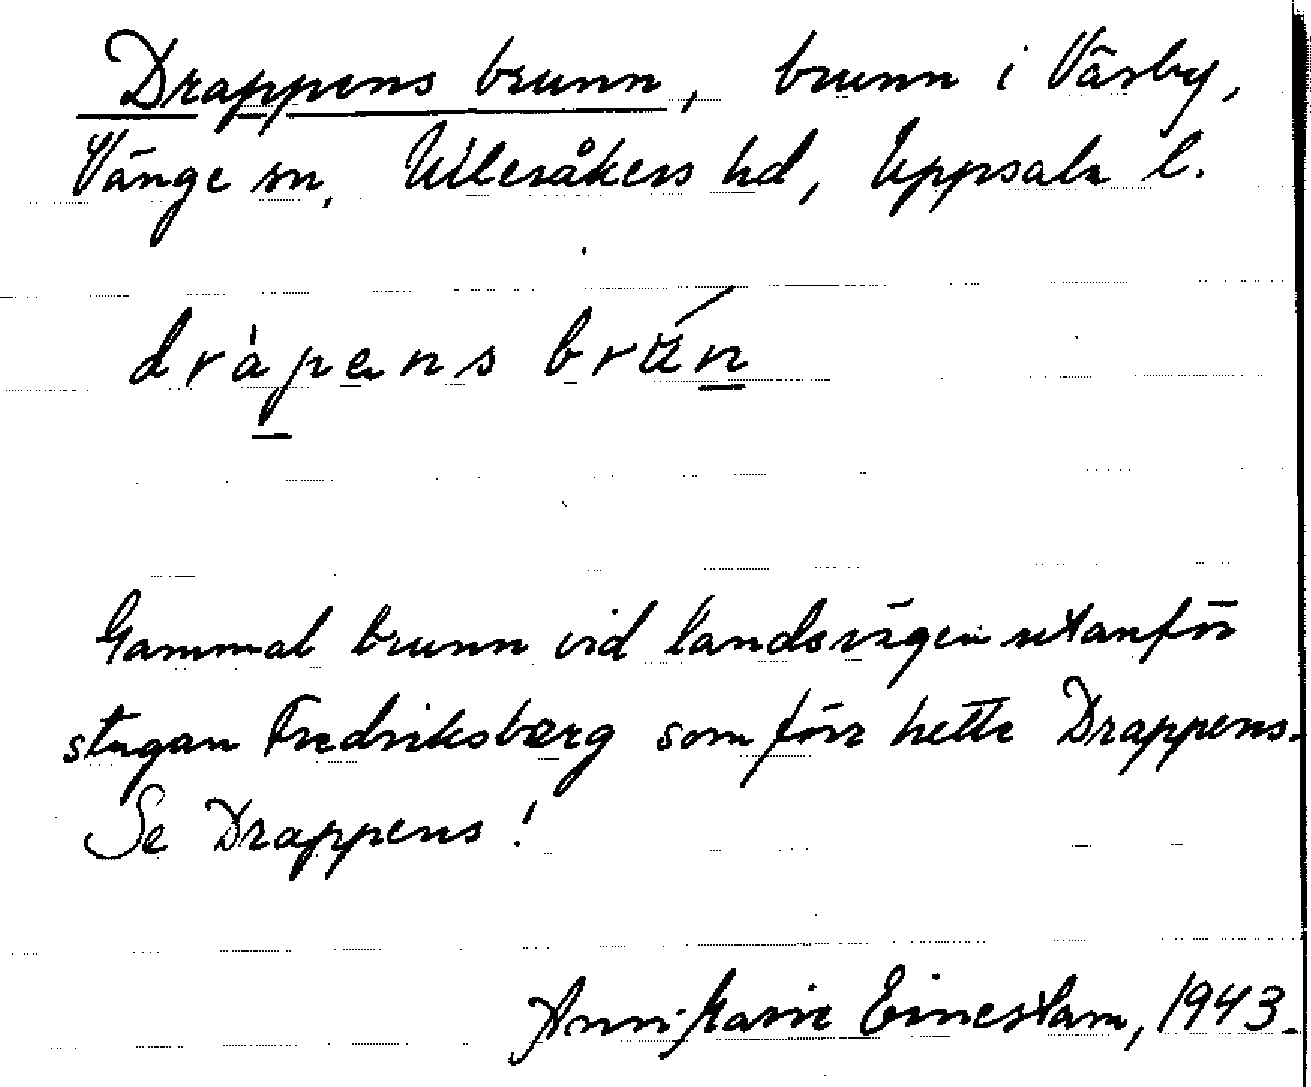 Drappens brunn, brunn i Väsby,
Vänge sn, Ulleråkers hd, Uppsala l.
dràpens brän
Gammal brunn vid landsvägen utanför
stugan Fredriksberg som förr hette Drappens.
Se Drappens!
Ann-Marie Einestam, 1943.